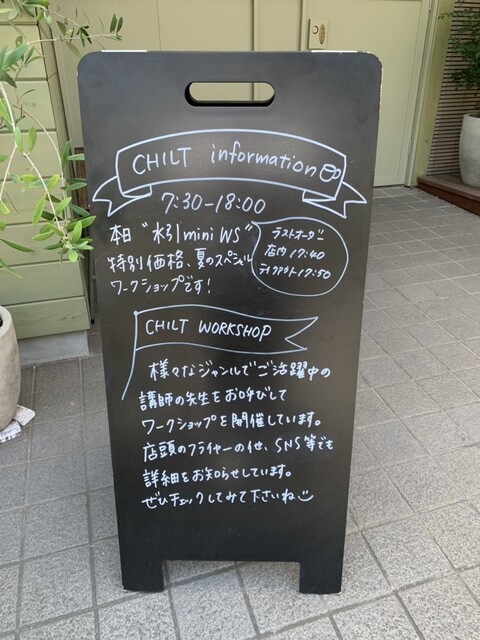 CHILT information
7:30-18:00
本日 "水引mini WS"
特別価格、夏のスペシャル
ワークショップです!
ラストオーダー
店内 17:40
テイクアウト 17:50
CHILT WORKSHOP
様々なジャンルでご活躍中の
講師の先生をお呼びして
ワークショップを開催しています。
店頭のフライヤーの他、SNS等でも
詳細をお知らせしています。
ぜひチェックしてみて下さいね